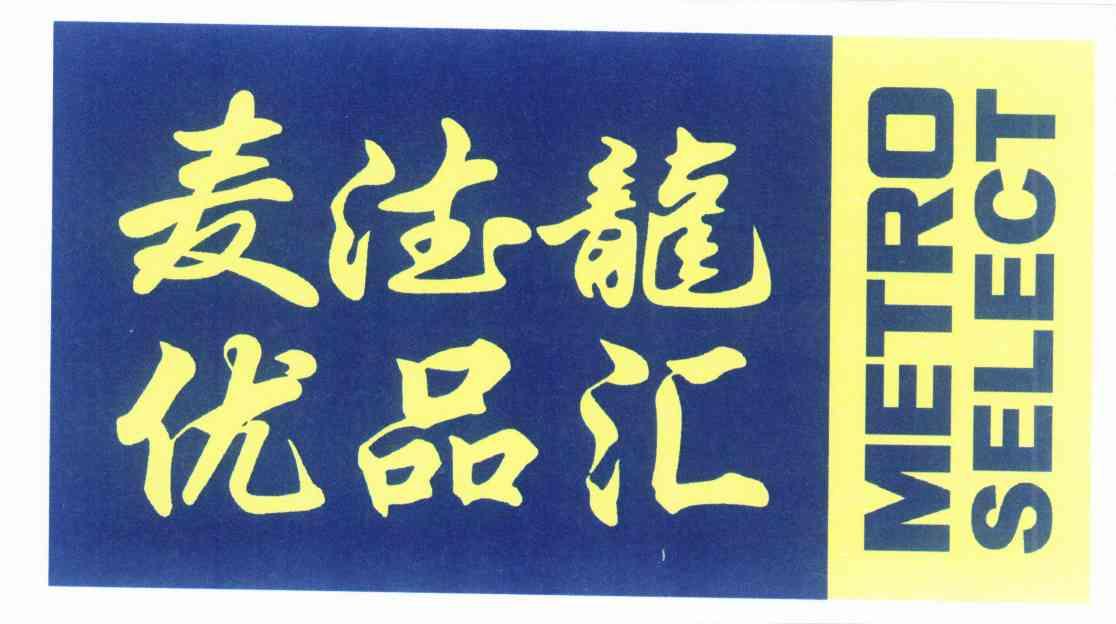 麦德龍
优品汇
METRO
SELECT